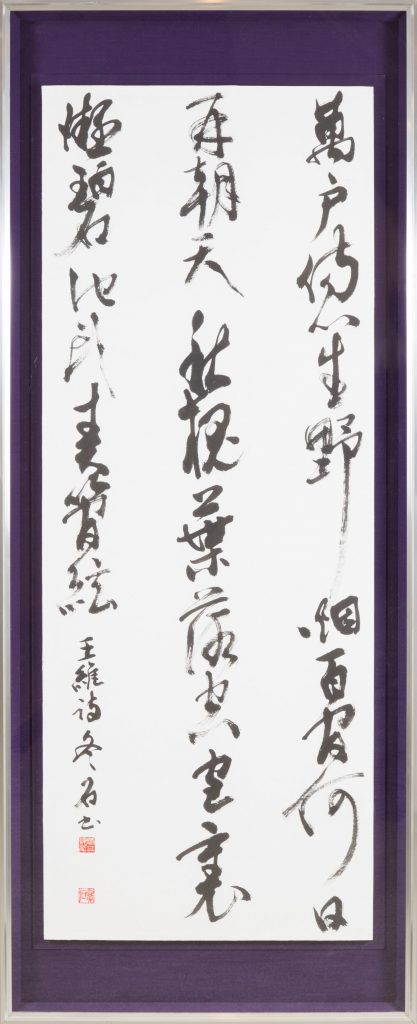 萬戸傷心生野烟百官何日
再朝天秋槐葉落空宮裏
凝碧池頭奏管絃 王維詩 冬石書